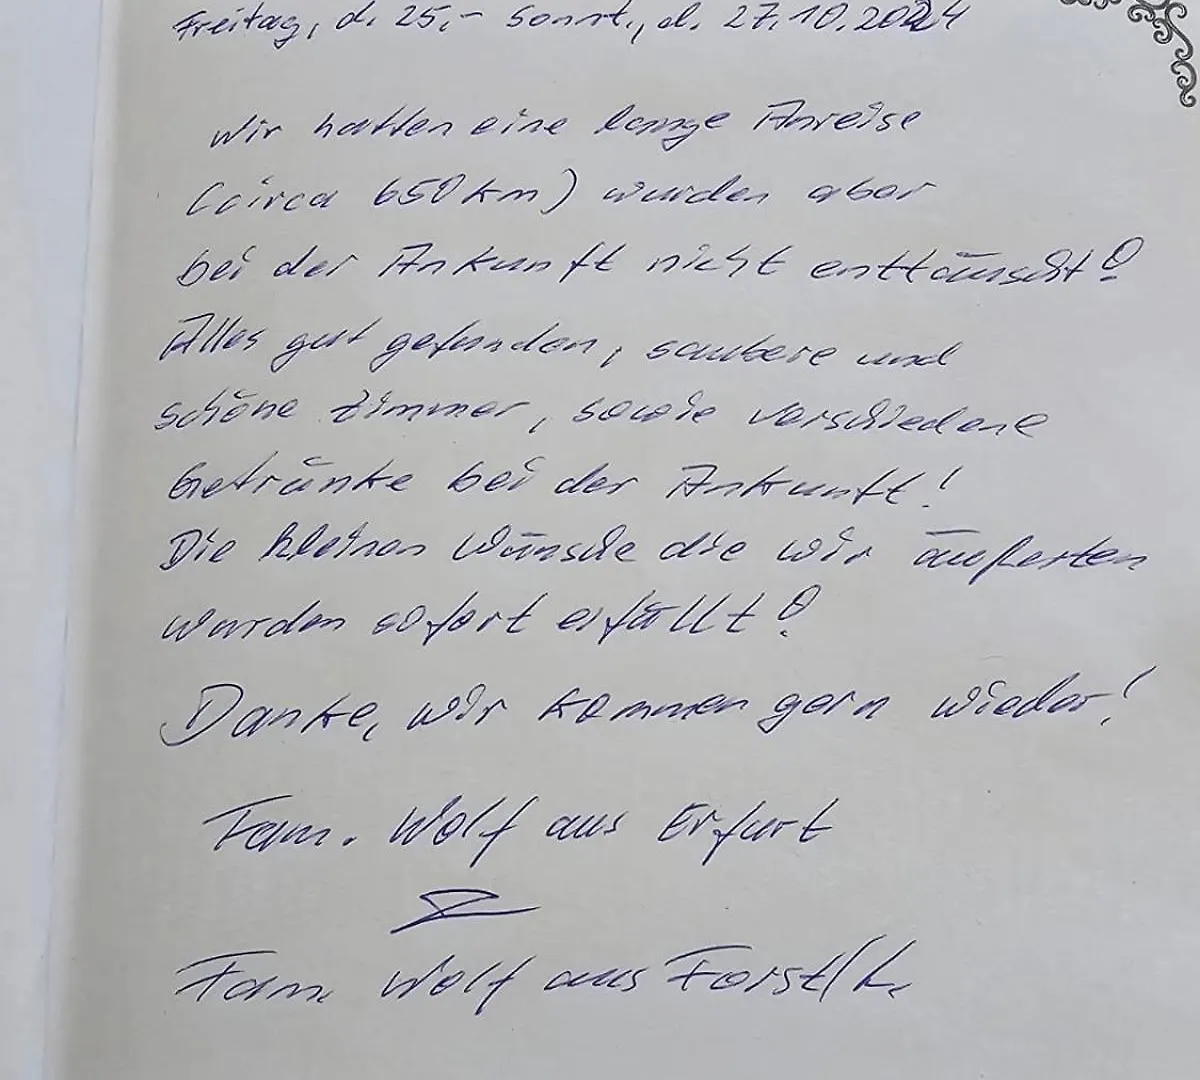 Freitag, d. 25,- Sonnt., d. 27.10.2024
Wir hatten eine lange Anreise
(circa 650 km) wurden aber
bei der Ankunft nicht enttäuscht!
Alles gut gefunden, saubere und
schöne Zimmer, sowie verschiedene
Getränke bei der Ankunft!
Die kleinen Wünsche die wir äußerten
wurden sofort erfüllt!
Danke, wir kommen gern wieder!
Fam. Wolf aus Erfurt
&
Fam. Wolf aus Forst/L.